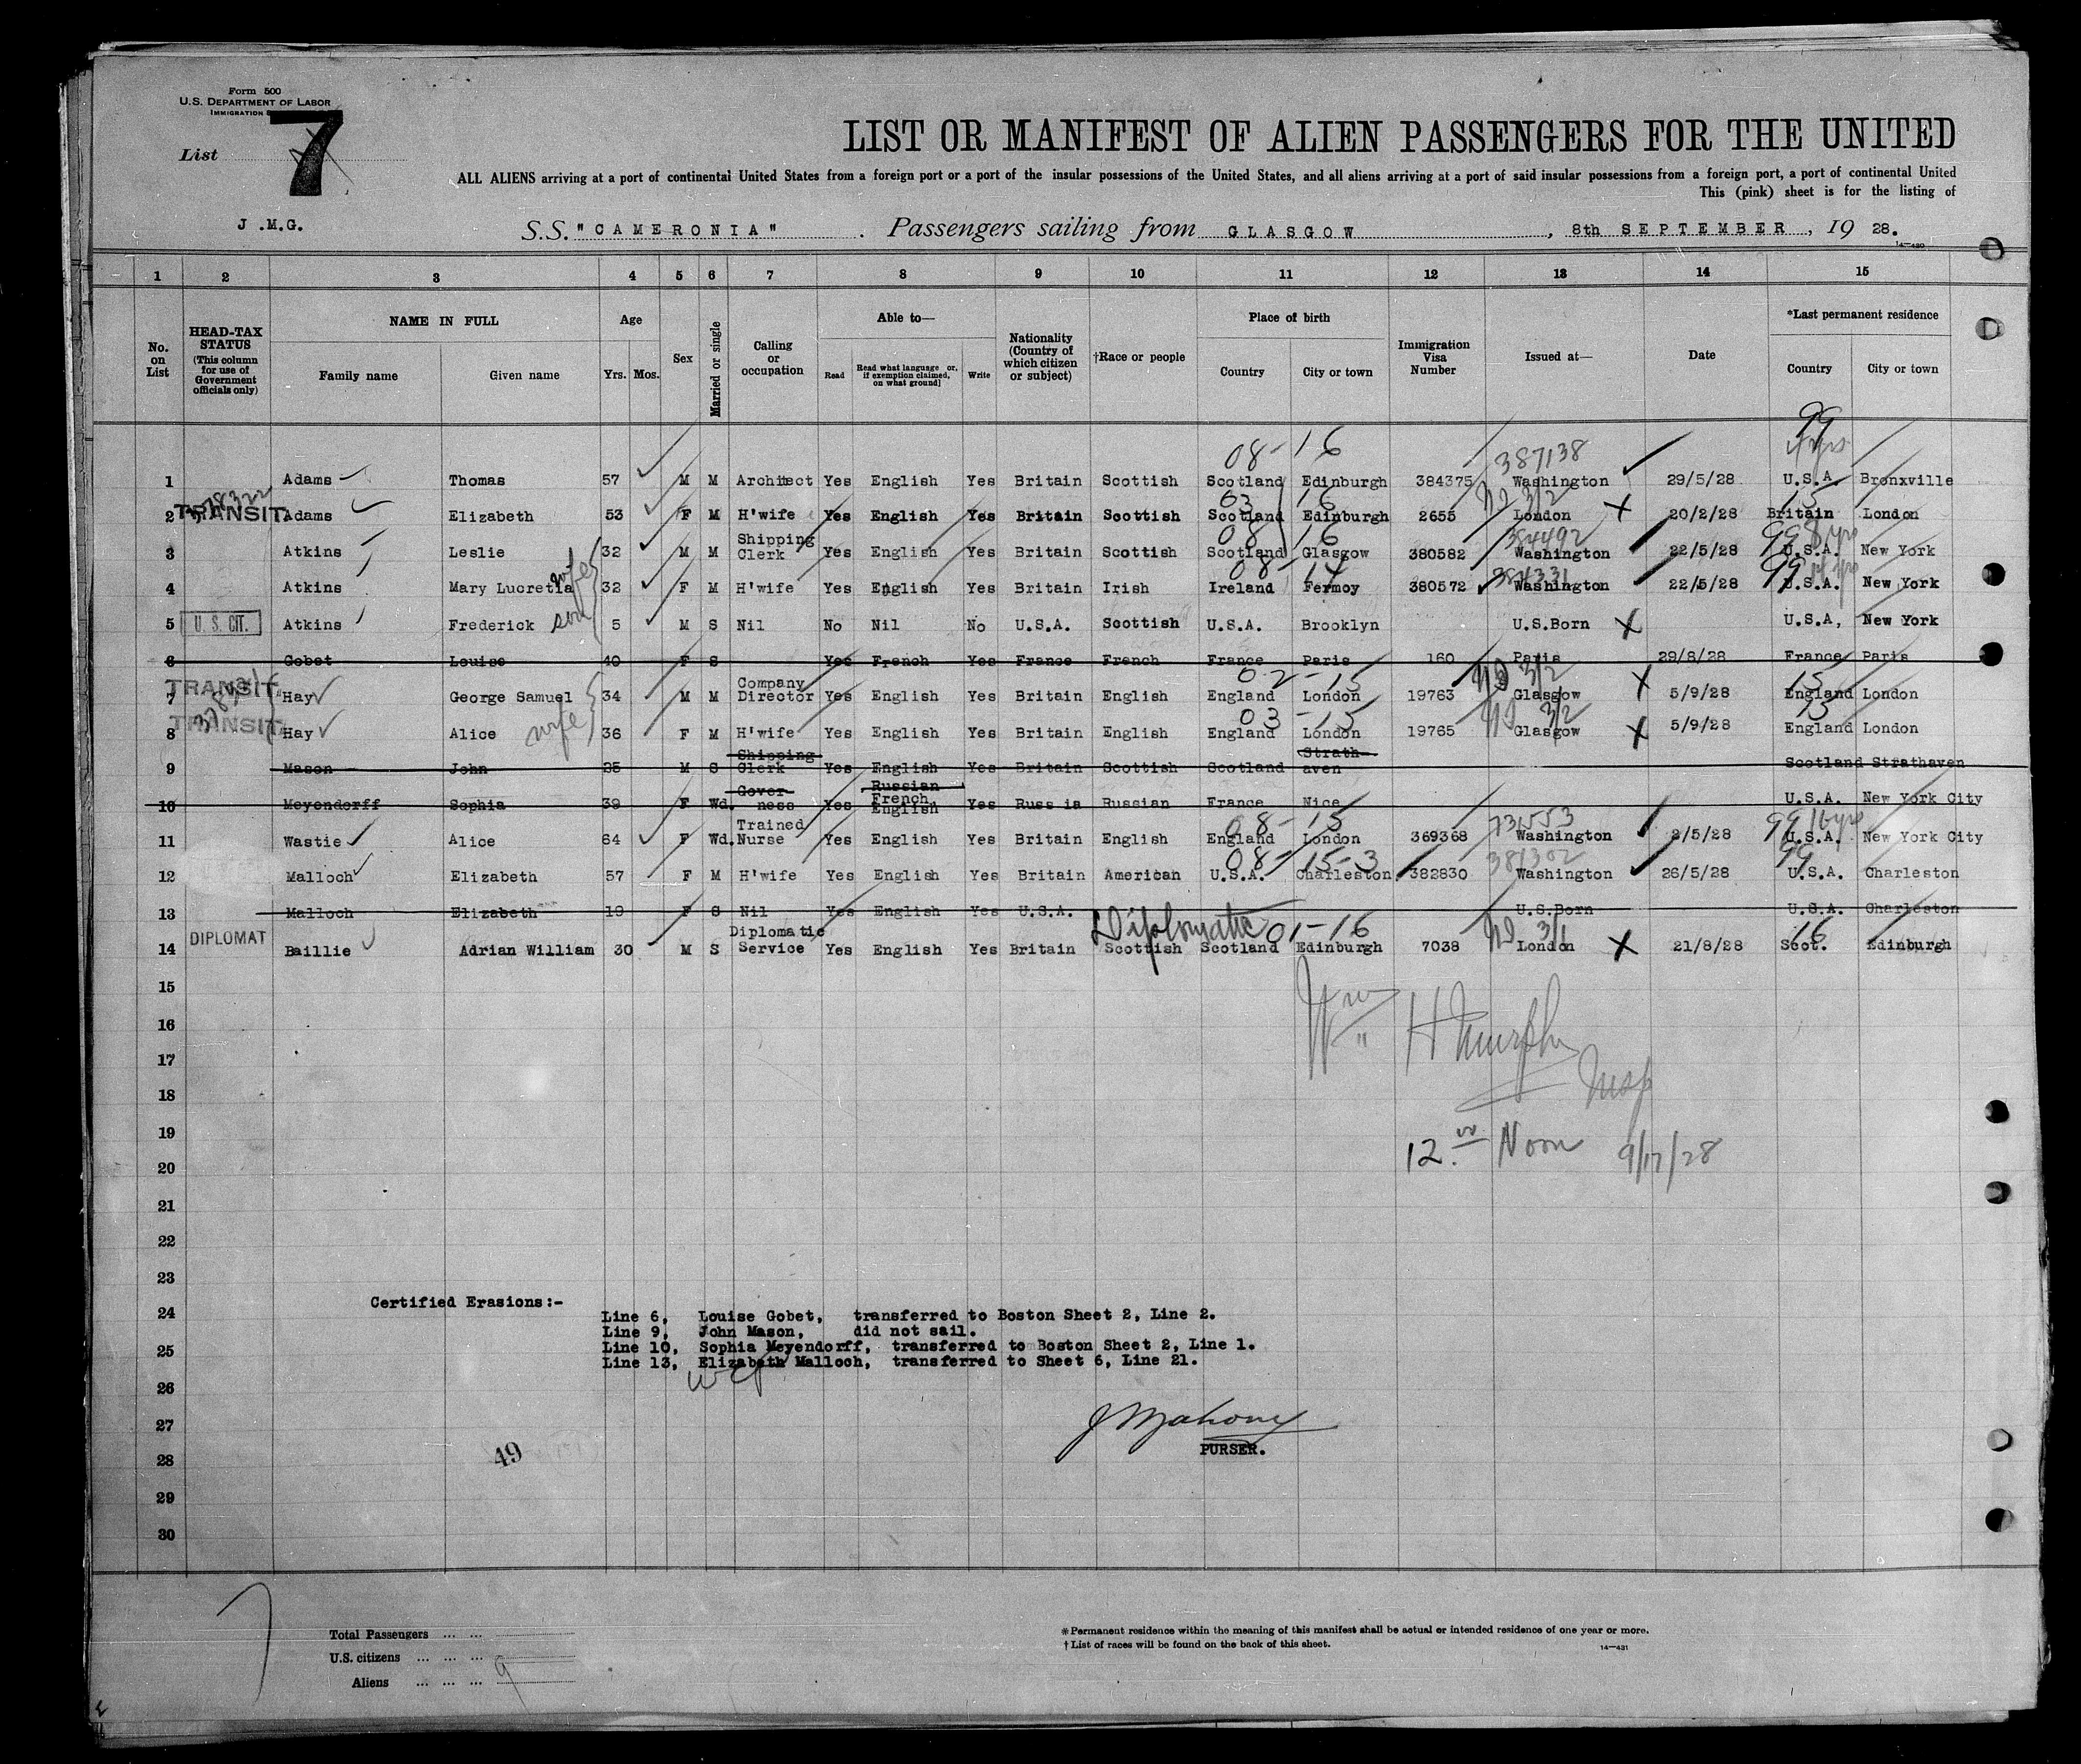 Form 500
U.S. DEPARTMENT OF LABOR
IMMIGRATION
List 7
LIST OR MANIFEST OF ALIEN PASSENGERS FOR THE UNITED
ALL ALIENS arriving at a port of continental United States from a foreign port or a port of the insular possessions of the United States, and all aliens arriving at a port of said insular possessions from a foreign port, a port of continental United
This (pink) sheet is for the listing of
J .M.G.
S.S. "CAMERONIA" . Passengers sailing from GLASGOW , 8th SEPTEMBER , 19 28.
14—430
1 2 3 4 5 6 7 8 9 10 11 12 13 14 15
No. on List
HEAD-TAX STATUS (This column for use of Government officials only)
NAME IN FULL Family name Given name
Age Yrs. Mos.
Sex
Married or single
Calling or occupation
Able to— Read Read what language or, if exemption claimed, on what ground] Write
Nationality (Country of which citizen or subject)
†Race or people
Place of birth Country City or town
Immigration Visa Number
Issued at—
Date
*Last permanent residence Country City or town
08-16 387138 99 4 yrs
1 Adams Thomas 57 M M Architect Yes English Yes Britain Scottish Scotland Edinburgh 384375 Washington 29/5/28 U.S.A. Bronxville
03 16 3/2 15
2 TRANSIT Adams Elizabeth 53 F M H'wife Yes English Yes Britain Scottish Scotland Edinburgh 2655 London X 20/2/28 Britain London
08 16 384492 99 8 yrs
3 Atkins Leslie 32 M M Shipping Clerk Yes English Yes Britain Scottish Scotland Glasgow 380582 Washington 22/5/28 U.S.A. New York
08-14 384331 99
4 Atkins Mary Lucretia wife 32 F M H'wife Yes English Yes Britain Irish Ireland Fermoy 380572 Washington 22/5/28 U.S.A. New York
5 U. S. CIT. Atkins Frederick son 5 M S Nil No Nil No U.S.A. Scottish U.S.A. Brooklyn U.S.Born X U.S.A, New York
6 Gobet Louise 40 F S Yes French Yes France French France Paris 160 Paris 29/8/28 France Paris
02-15 3/2 15
7 TRANSIT Hay George Samuel 34 M M Company Director Yes English Yes Britain English England London 19763 Glasgow X 5/9/28 England London
03-15 3/2 15
8 TRANSIT Hay Alice wife 36 F M H'wife Yes English Yes Britain English England London 19765 Glasgow X 5/9/28 England London
9 Mason John 25 M S Shipping Clerk Yes English Yes Britain Scottish Scotland Strath-aven Scotland Strathaven
10 Meyendorff Sophia 39 F Wd. Gover-ness Yes Russian French English Yes Russia Russian France Nice U.S.A. New York City
08-15 731553 99 16 yrs
11 Wastie Alice 64 F Wd. Trained Nurse Yes English Yes Britain English England London 369368 Washington 2/5/28 U.S.A. New York City
08-15-3 381302 99
12 Malloch Elizabeth 57 F M H'wife Yes English Yes Britain American U.S.A. Charleston. 382830 Washington 26/5/28 U.S.A. Charleston
13 Malloch Elizabeth 19 F S Nil Yes English Yes U.S.A. U.S.Born U.S.A. Charleston
Diplomatic 01-16 3/1 16
14 DIPLOMAT Baillie Adrian William 30 M S Diplomatic Service Yes English Yes Britain Scottish Scotland Edinburgh 7038 London X 21/8/28 Scot. Edinburgh
15
16
Wm H Murphy
17
18 Insp
19
12.00 Noon 9/17/28
20
21
22
23
Certified Erasions:-
24 Line 6, Louise Gobet, transferred to Boston Sheet 2, Line 2.
Line 9, John Mason, did not sail.
25 Line 10, Sophia Meyendorff, transferred to Boston Sheet 2, Line 1.
Line 13, Elizabeth Malloch, transferred to Sheet 6, Line 21.
26
27 J Mahony
PURSER.
28 49
29
30
Total Passengers ... ...
U.S. citizens ... ... ...
Aliens ... ... ... 9
*Permanent residence within the meaning of this manifest shall be actual or intended residence of one year or more.
†List of races will be found on the back of this sheet.
14—431